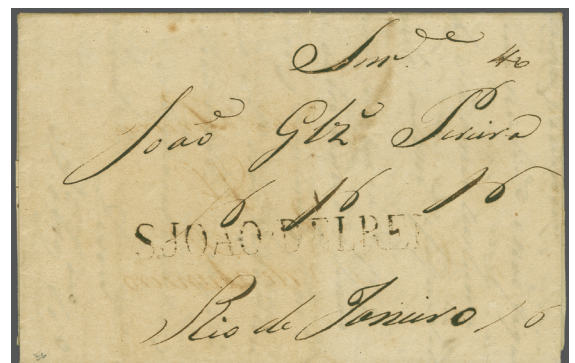 Snr.
João Glz Pereira
S.JOAO·DELREI
Rio de Janeiro